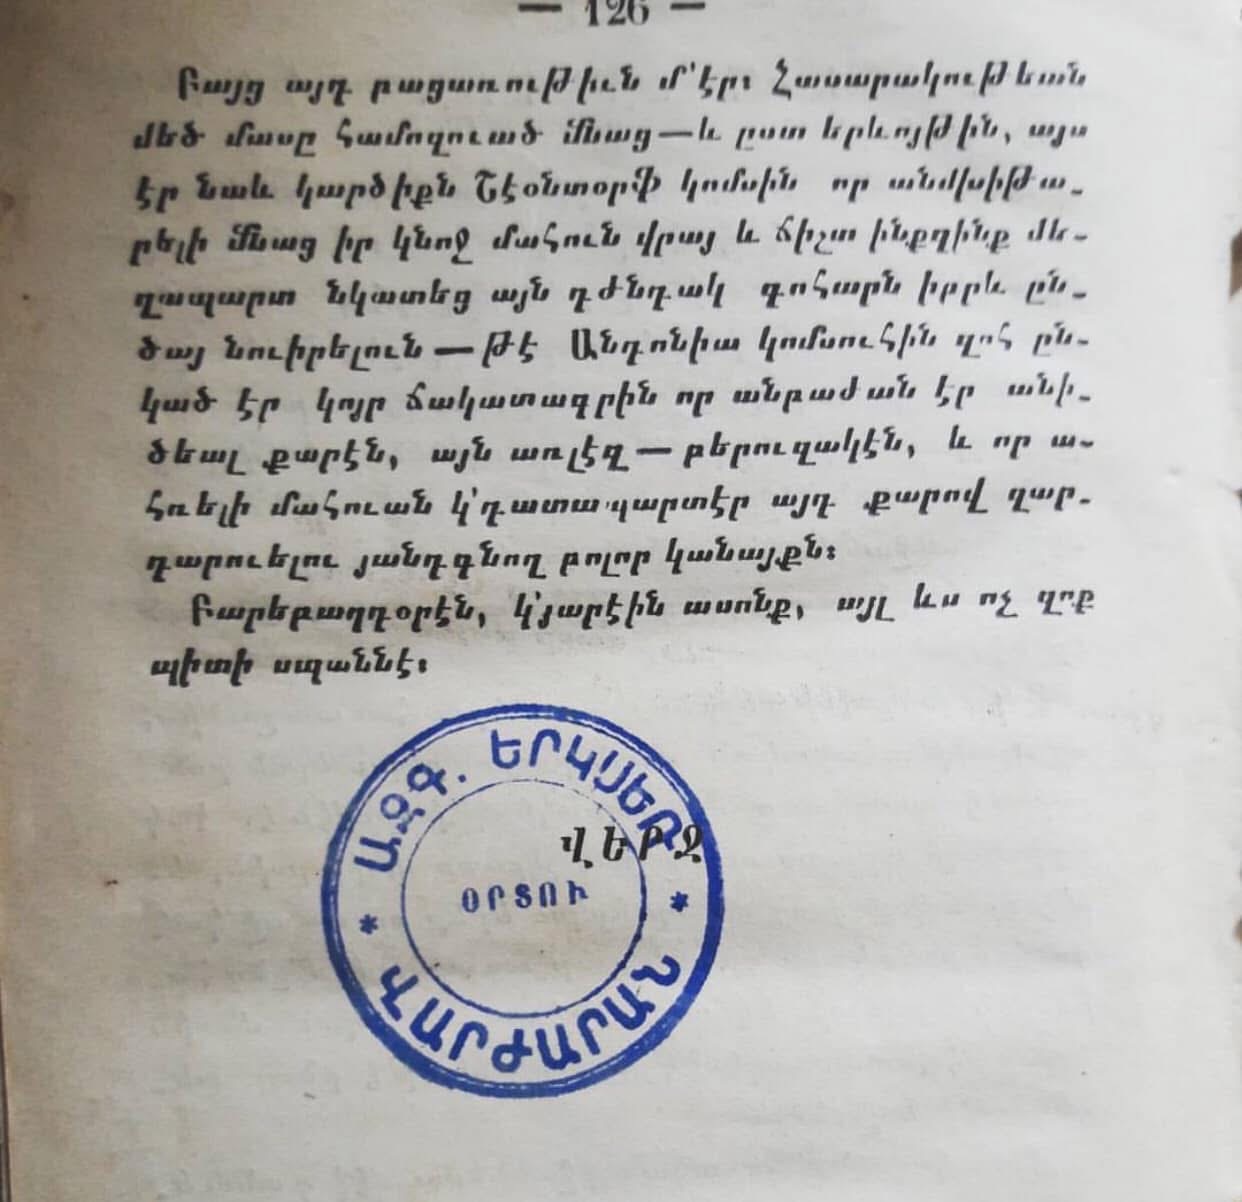 — 126 —
Բայց այդ բացառութիւն մ՚էր։ Հասարակութեան
մեծ մասը համոզուած մնաց — և ըստ երևոյթին, այս
էր նաև կարծիքն Շէօնտօրֆ կոմսին որ անմխիթա-
րելի մնաց իր կնոջ մահուն վրայ և ճիշտ ինքզինք մե-
ղապարտ նկատեց այն դժնդակ գոհարն իբրև ըն-
ծայ նուիրելուն — թէ Անդոնիա կոմսուհին զոհ ըն-
կած էր կոյր ճակատագրին որ անբաժան էր անի-
ծեալ քարէն, այն առլէզ — բերուզակէն, և որ ա-
հռելի մահուան կ՚դատապարտէր այդ քարով զար-
դարուելու յանդգնող բոլոր կանայքն։
Բարեբաղդօրէն, կ՚յարէին ասոնք, այլ ևս ոչ զոք
պիտի սպաննէ։
ՎԵՐՋ
ԱԶԳ. ԵՐԿՍԵՌ
ՕՐՏՈՒ
ՎԱՐԺԱՐԱՆ